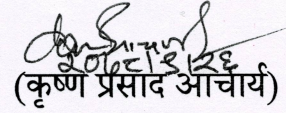 २०६८।३।२६
(कृष्ण प्रसाद आचार्य)